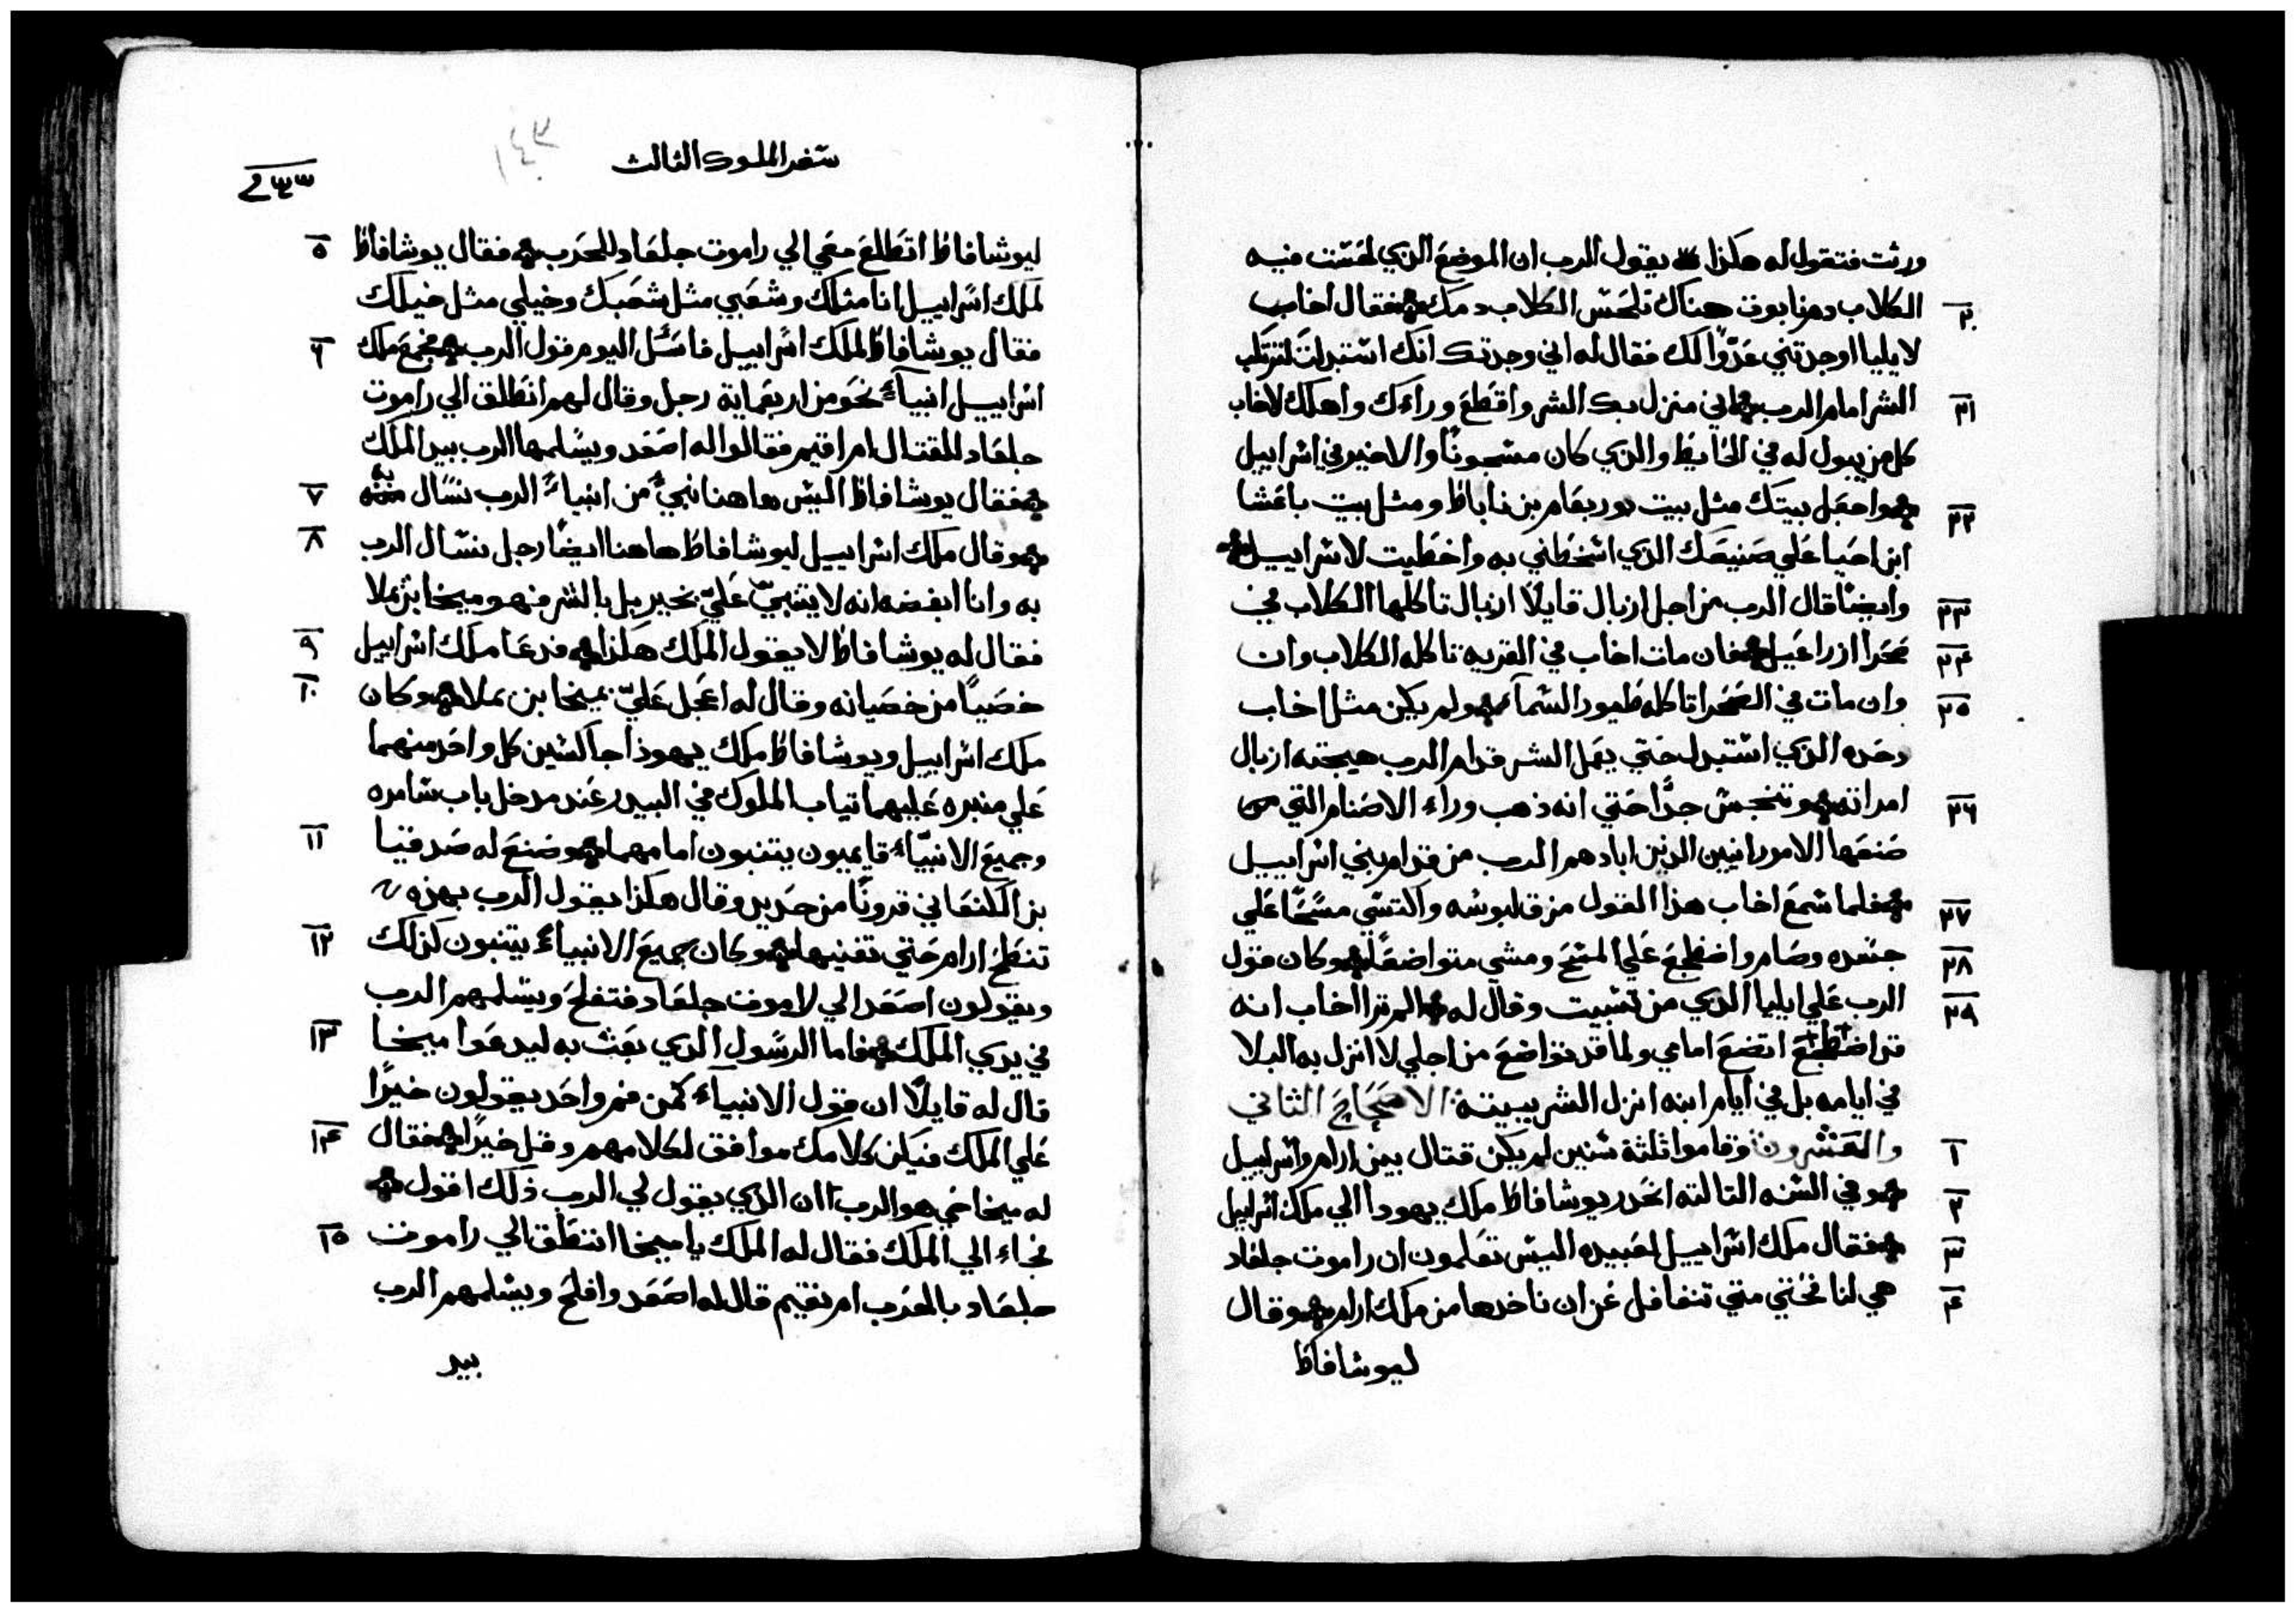 ورثت فتقول له هكذا يقول الرب ان الموضع الذي لحست فيه
الكلاب دم نابوت هناك تلحس الكلاب دمك فقال اخاب
٢٠
لايليا اوجدتني عدوًا لك فقال له اني وجدتك انك استبدلت لترتكب
الشر امام الرب اني منزل بك الشر واقطع وراءك واهلك لاخاب
٢١
كل من يبول له في الحايط والذي كان مسجونًا والاخير في اسراييل
واجعل بيتك مثل بيت يوربعام بن ناباط ومثل بيت باعشا
٢٢
ابن احيا علي صنيعك الذي اسخطني به واخطيت لاسراييل
وايضًا قال الرب من اجل ازبال قايلًا ازبال تاكلها الكلاب في
٢٣
صحرا ازراعيل فان مات اخاب في القريه تاكله الكلاب وان
٢٤
وان مات في الصحرا تاكله طيور السمآء ولم يكن مثل اخاب
٢٥
وحده الذي استبدل حتي يعمل الشر قدام الرب هيجته ازبال
امراته وتنجس جدًّا حتي انه ذهب وراء الاصنام التي
٢٦
صنعها الامورانيين الذين ابادهم الرب من قدام بني اسراييل
فلما سمع اخاب هذا القول مزق لبوسه واكتسي مسحًا علي
٢٧
جسده وصام واضطجع علي المسح ومشي متواضعًا وكان قول
٢٨
الرب علي ايليا الذي من تسبيت وقال له الم تر اخاب انه
٢٩
قد اضطجع اتضع امامي ولما قد تواضع من اجلي لا انزل به البلا
في ايامه بل في ايام ابنه انزل الشر ببيته الاصحاح الثاني
والعشرون وقاموا ثلثة سنين لم يكن قتال بين ارام واسراييل
١
وفي السنه التالته انحدر يوشافاط ملك يهودا الي ملك اسراييل
٢
فقال ملك اسراييل لعبيده اليس تعلمون ان راموت جلعاد
٣
هي لنا فحتي متي تتغافل عن ان ناخدها من ملك ارام وقال
٤
ليوشافاط
سفر الملوك الثالث
١٤٣
ليوشافاط اتطلع معي الي راموت جلعاد للحرب فقال يوشافاط
٥
لملك اسراييل انا مثلك وشعبي مثل شعبك وخيلي مثل خيلك
فقال يوشافاط لملك اسراييل فاسئل اليوم قول الرب فجمع ملك
٦
اسراييل انبيآء نحو من اربعماية رجل وقال لهم انطلق الي راموت
جلعاد للقتال ام اقيم فقالوا له اصعد ويسلمها الرب بيد الملك
فقال يوشافاط اليس هاهنا نبي من انبياء الرب نسال
٧
وقال ملك اسراييل ليوشافاط هاهنا ايضًا رجل نسال الرب
٨
به وانا ابغضه انه لا يتنبي عليّ بخير بل بالشر فهو ميخا بن يملا
فقال له يوشافاط لا يقول الملك هكذا فدعا ملك اسراييل
٩
خصيًا من خصيانه وقال له اعجل عليّ بميخا بن يملا وكان
١٠
ملك اسراييل ويوشافاط ملك يهوذا جالسين كل واحد منهما
علي منبره عليهما تياب الملوك في البيدر عند مدخل باب سامره
وجميع الانبيّاء قاييمون يتنبون امامهما وصنع له صدقيا
١١
بن الكنعاني قرونًا من حديد وقال هكذا يقول الرب بهذه
تنطح ارام حتي تفنيها وكان جميع الانبياء يتنبون كذلك
١٢
ويقولون اصعد الي لاموت جلعاد فتفلح ويسلمهم الرب
في يدي الملك فاما الرسول الذي بعث به ليدعوا ميخا
١٣
قال له قايلًا ان قول الانبيآء كمن فم واحد يقولون خيرًا
علي الملك فيكن كلامك موافق لكلامهم وقل خيرًا فقال
١٤
له ميخا حي هو الرب ان الذي يقول لي الرب ذلك اقول
فجاء الي الملك فقال له الملك يا ميخا انتطلق الي راموت
١٥
جلعاد بالحرب ام نقيم قال له اصعد وافلح ويسلمهم الرب
بيد